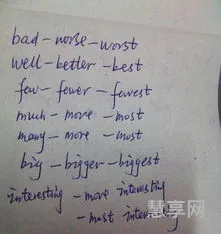 bad - worse - worst
well - better - best
few - fewer - fewest
much - more - most
many - more - most
big - bigger - biggest
interesting - more interesting
- most interesting
慧享网